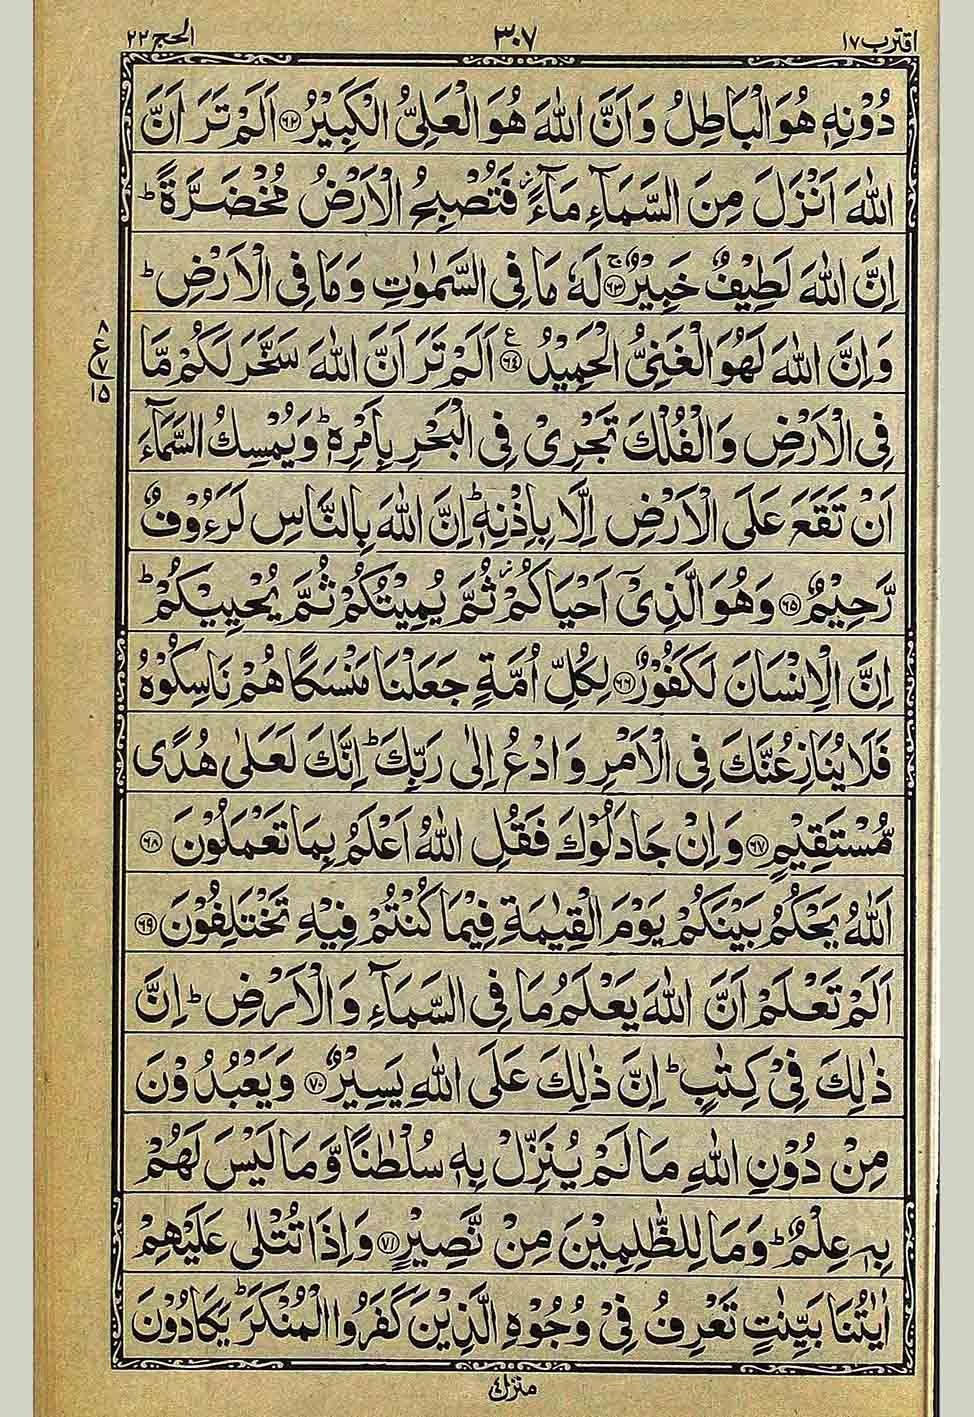 اقترب ١٧ ٣٠٧ الحج ٢٢
دُوۡنِهٖ هُوَ الۡبَاطِلُ وَاَنَّ اللّٰهَ هُوَ الۡعَلِىُّ الۡكَبِيۡرُ ﴿٦٢﴾ اَلَمۡ تَرَ اَنَّ
اللّٰهَ اَنۡزَلَ مِنَ السَّمَآءِ مَآءً‌ۖ فَتُصۡبِحُ الۡاَرۡضُ مُخۡضَرَّةً‌ ؕ
اِنَّ اللّٰهَ لَطِيۡفٌ خَبِيۡرٌ‌ ۚ‏ ﴿٦٣﴾ لَهٗ مَا فِى السَّمٰوٰتِ وَمَا فِى الۡاَرۡضِ‌ ؕ
وَاِنَّ اللّٰهَ لَهُوَ الۡغَنِىُّ الۡحَمِيۡدُ ﴿٦٤﴾ اَلَمۡ تَرَ اَنَّ اللّٰهَ سَخَّرَ لَكُمۡ مَّا
٨ ع ٧ ١٥
فِى الۡاَرۡضِ وَالۡفُلۡكَ تَجۡرِىۡ فِى الۡبَحۡرِ بِاَمۡرِهٖ ؕ وَيُمۡسِكُ السَّمَآءَ
اَنۡ تَقَعَ عَلَى الۡاَرۡضِ اِلَّا بِاِذۡنِهٖ ؕ اِنَّ اللّٰهَ بِالنَّاسِ لَرَءُوۡفٌ
رَّحِيۡمٌ ﴿٦٥﴾ وَهُوَ الَّذِىۡۤ اَحۡيَاكُمۡ ثُمَّ يُمِيۡتُكُمۡ ثُمَّ يُحۡيِيۡكُمۡ‌ ؕ
اِنَّ الۡاِنۡسَانَ لَـكَفُوۡرٌ ﴿٦٦﴾ لِكُلِّ اُمَّةٍ جَعَلۡنَا مَنۡسَكًا هُمۡ نَاسِكُوۡهُ
فَلَا يُنَازِعُنَّكَ فِى الۡاَمۡرِ وَادۡعُ اِلٰى رَبِّكَ‌ ؕ اِنَّكَ لَعَلٰى هُدًى
مُّسۡتَقِيۡمٍ ﴿٦٧﴾ وَاِنۡ جَادَلُوۡكَ فَقُلِ اللّٰهُ اَعۡلَمُ بِمَا تَعۡمَلُوۡنَ ﴿٦٨﴾
اَللّٰهُ يَحۡكُمُ بَيۡنَكُمۡ يَوۡمَ الۡقِيٰمَةِ فِيۡمَا كُنۡتُمۡ فِيۡهِ تَخۡتَلِفُوۡنَ ﴿٦٩﴾
اَلَمۡ تَعۡلَمۡ اَنَّ اللّٰهَ يَعۡلَمُ مَا فِى السَّمَآءِ وَالۡاَرۡضِ‌ ؕ اِنَّ
ذٰلِكَ فِىۡ كِتٰبٍ‌ ؕ اِنَّ ذٰلِكَ عَلَى اللّٰهِ يَسِيۡرٌ ﴿٧٠﴾ وَيَعۡبُدُوۡنَ
مِنۡ دُوۡنِ اللّٰهِ مَا لَمۡ يُنَزِّلۡ بِهٖ سُلۡطٰنًا وَّمَا لَـيۡسَ لَهُمۡ
بِهٖ عِلۡمٌ‌ ؕ وَمَا لِلظّٰلِمِيۡنَ مِنۡ نَّصِيۡرٍ ﴿٧١﴾ وَاِذَا تُتۡلٰى عَلَيۡهِمۡ
اٰيٰتُنَا بَيِّنٰتٍ تَعۡرِفُ فِىۡ وُجُوۡهِ الَّذِيۡنَ كَفَرُوا الۡمُنۡكَرَ‌ ؕ يَكَادُوۡنَ
منزل ٤